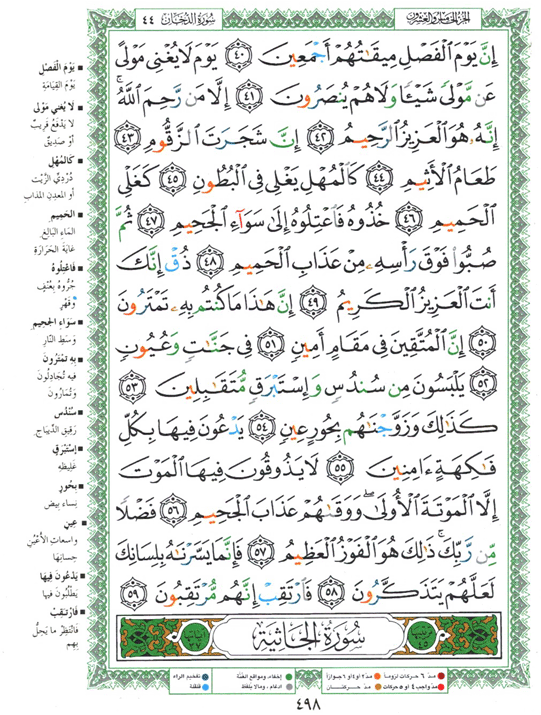 الجزء الخامس والعشرون
سورة الدخان ٤٤
إِنَّ يَوْمَ ٱلْفَصْلِ مِيقَٰتُهُمْ أَجْمَعِينَ ٤٠ يَوْمَ لَا يُغْنِى مَوْلًى
عَن مَّوْلًى شَيْـًٔا وَلَا هُمْ يُنصَرُونَ ٤١ إِلَّا مَن رَّحِمَ ٱللَّهُ ۚ
إِنَّهُۥ هُوَ ٱلْعَزِيزُ ٱلرَّحِيمُ ٤٢ إِنَّ شَجَرَتَ ٱلزَّقُّومِ ٤٣
طَعَامُ ٱلْأَثِيمِ ٤٤ كَٱلْمُهْلِ يَغْلِى فِى ٱلْبُطُونِ ٤٥ كَغَلْىِ
ٱلْحَمِيمِ ٤٦ خُذُوهُ فَٱعْتِلُوهُ إِلَىٰ سَوَآءِ ٱلْجَحِيمِ ٤٧ ثُمَّ
صُبُّوا۟ فَوْقَ رَأْسِهِۦ مِنْ عَذَابِ ٱلْحَمِيمِ ٤٨ ذُقْ إِنَّكَ
أَنتَ ٱلْعَزِيزُ ٱلْكَرِيمُ ٤٩ إِنَّ هَٰذَا مَا كُنتُم بِهِۦ تَمْتَرُونَ
٥٠ إِنَّ ٱلْمُتَّقِينَ فِى مَقَامٍ أَمِينٍ ٥١ فِى جَنَّٰتٍ وَعُيُونٍ
٥٢ يَلْبَسُونَ مِن سُندُسٍ وَإِسْتَبْرَقٍ مُّتَقَٰبِلِينَ ٥٣
كَذَٰلِكَ وَزَوَّجْنَٰهُم بِحُورٍ عِينٍ ٥٤ يَدْعُونَ فِيهَا بِكُلِّ
فَٰكِهَةٍ ءَامِنِينَ ٥٥ لَا يَذُوقُونَ فِيهَا ٱلْمَوْتَ
إِلَّا ٱلْمَوْتَةَ ٱلْأُولَىٰ ۖ وَوَقَىٰهُمْ عَذَابَ ٱلْجَحِيمِ ٥٦ فَضْلًا
مِّن رَّبِّكَ ۚ ذَٰلِكَ هُوَ ٱلْفَوْزُ ٱلْعَظِيمُ ٥٧ فَإِنَّمَا يَسَّرْنَٰهُ بِلِسَانِكَ
لَعَلَّهُمْ يَتَذَكَّرُونَ ٥٨ فَٱرْتَقِبْ إِنَّهُم مُّرْتَقِبُونَ ٥٩
سُورَةُ الجَاثِيَة
يَوْمَ الْفَصْلِ
يَوْمَ القِيَامَةِ
لا يُغْنِي مَوْلًى
لا يَدْفَعُ قَرِيبٌ
أوْ صَدِيقٌ
كَالمُهْلِ
دُرْدِيِّ الزَّيْتِ
أو المعدِنِ المذابِ
الحَمِيمِ
المَاءِ البَالِغِ
غَايَةَ الحَرَارَةِ
فَاعْتِلُوهُ
جُرُّوهُ بِعُنْفٍ
وقَهْرٍ
سَوَاءِ الجحِيمِ
وَسَطِ النَّارِ
بِهِ تَمْتَرُونَ
فيه تُجَادِلُونَ
وتُمَارُونَ
سُنْدُسٍ
رَقِيقِ الدِّيبَاجِ
إِسْتَبْرَقٍ
غَلِيظِهِ
بِحُورٍ
نِساءٍ بيضٍ
عِينٍ
واسِعاتِ الأَعْيُنِ
حِسانِهَا
يَدْعُونَ فِيهَا
يَطْلُبُونَ فيها
فَارْتَقِبْ
فَانْتَظِرْ ما يَحِلُّ
بِهِم
مدّ ٦ حركات لزوماً
مدّ ٢ أو ٤ أو ٦ جوازاً
إخفاء، ومواقع الغنّة
تفخيم الراء
مدّ واجب ٤ أو ٥ حركات
مدّ حركتان
ادغام، وما لا يلفظ
قلقلة
٤٩٨